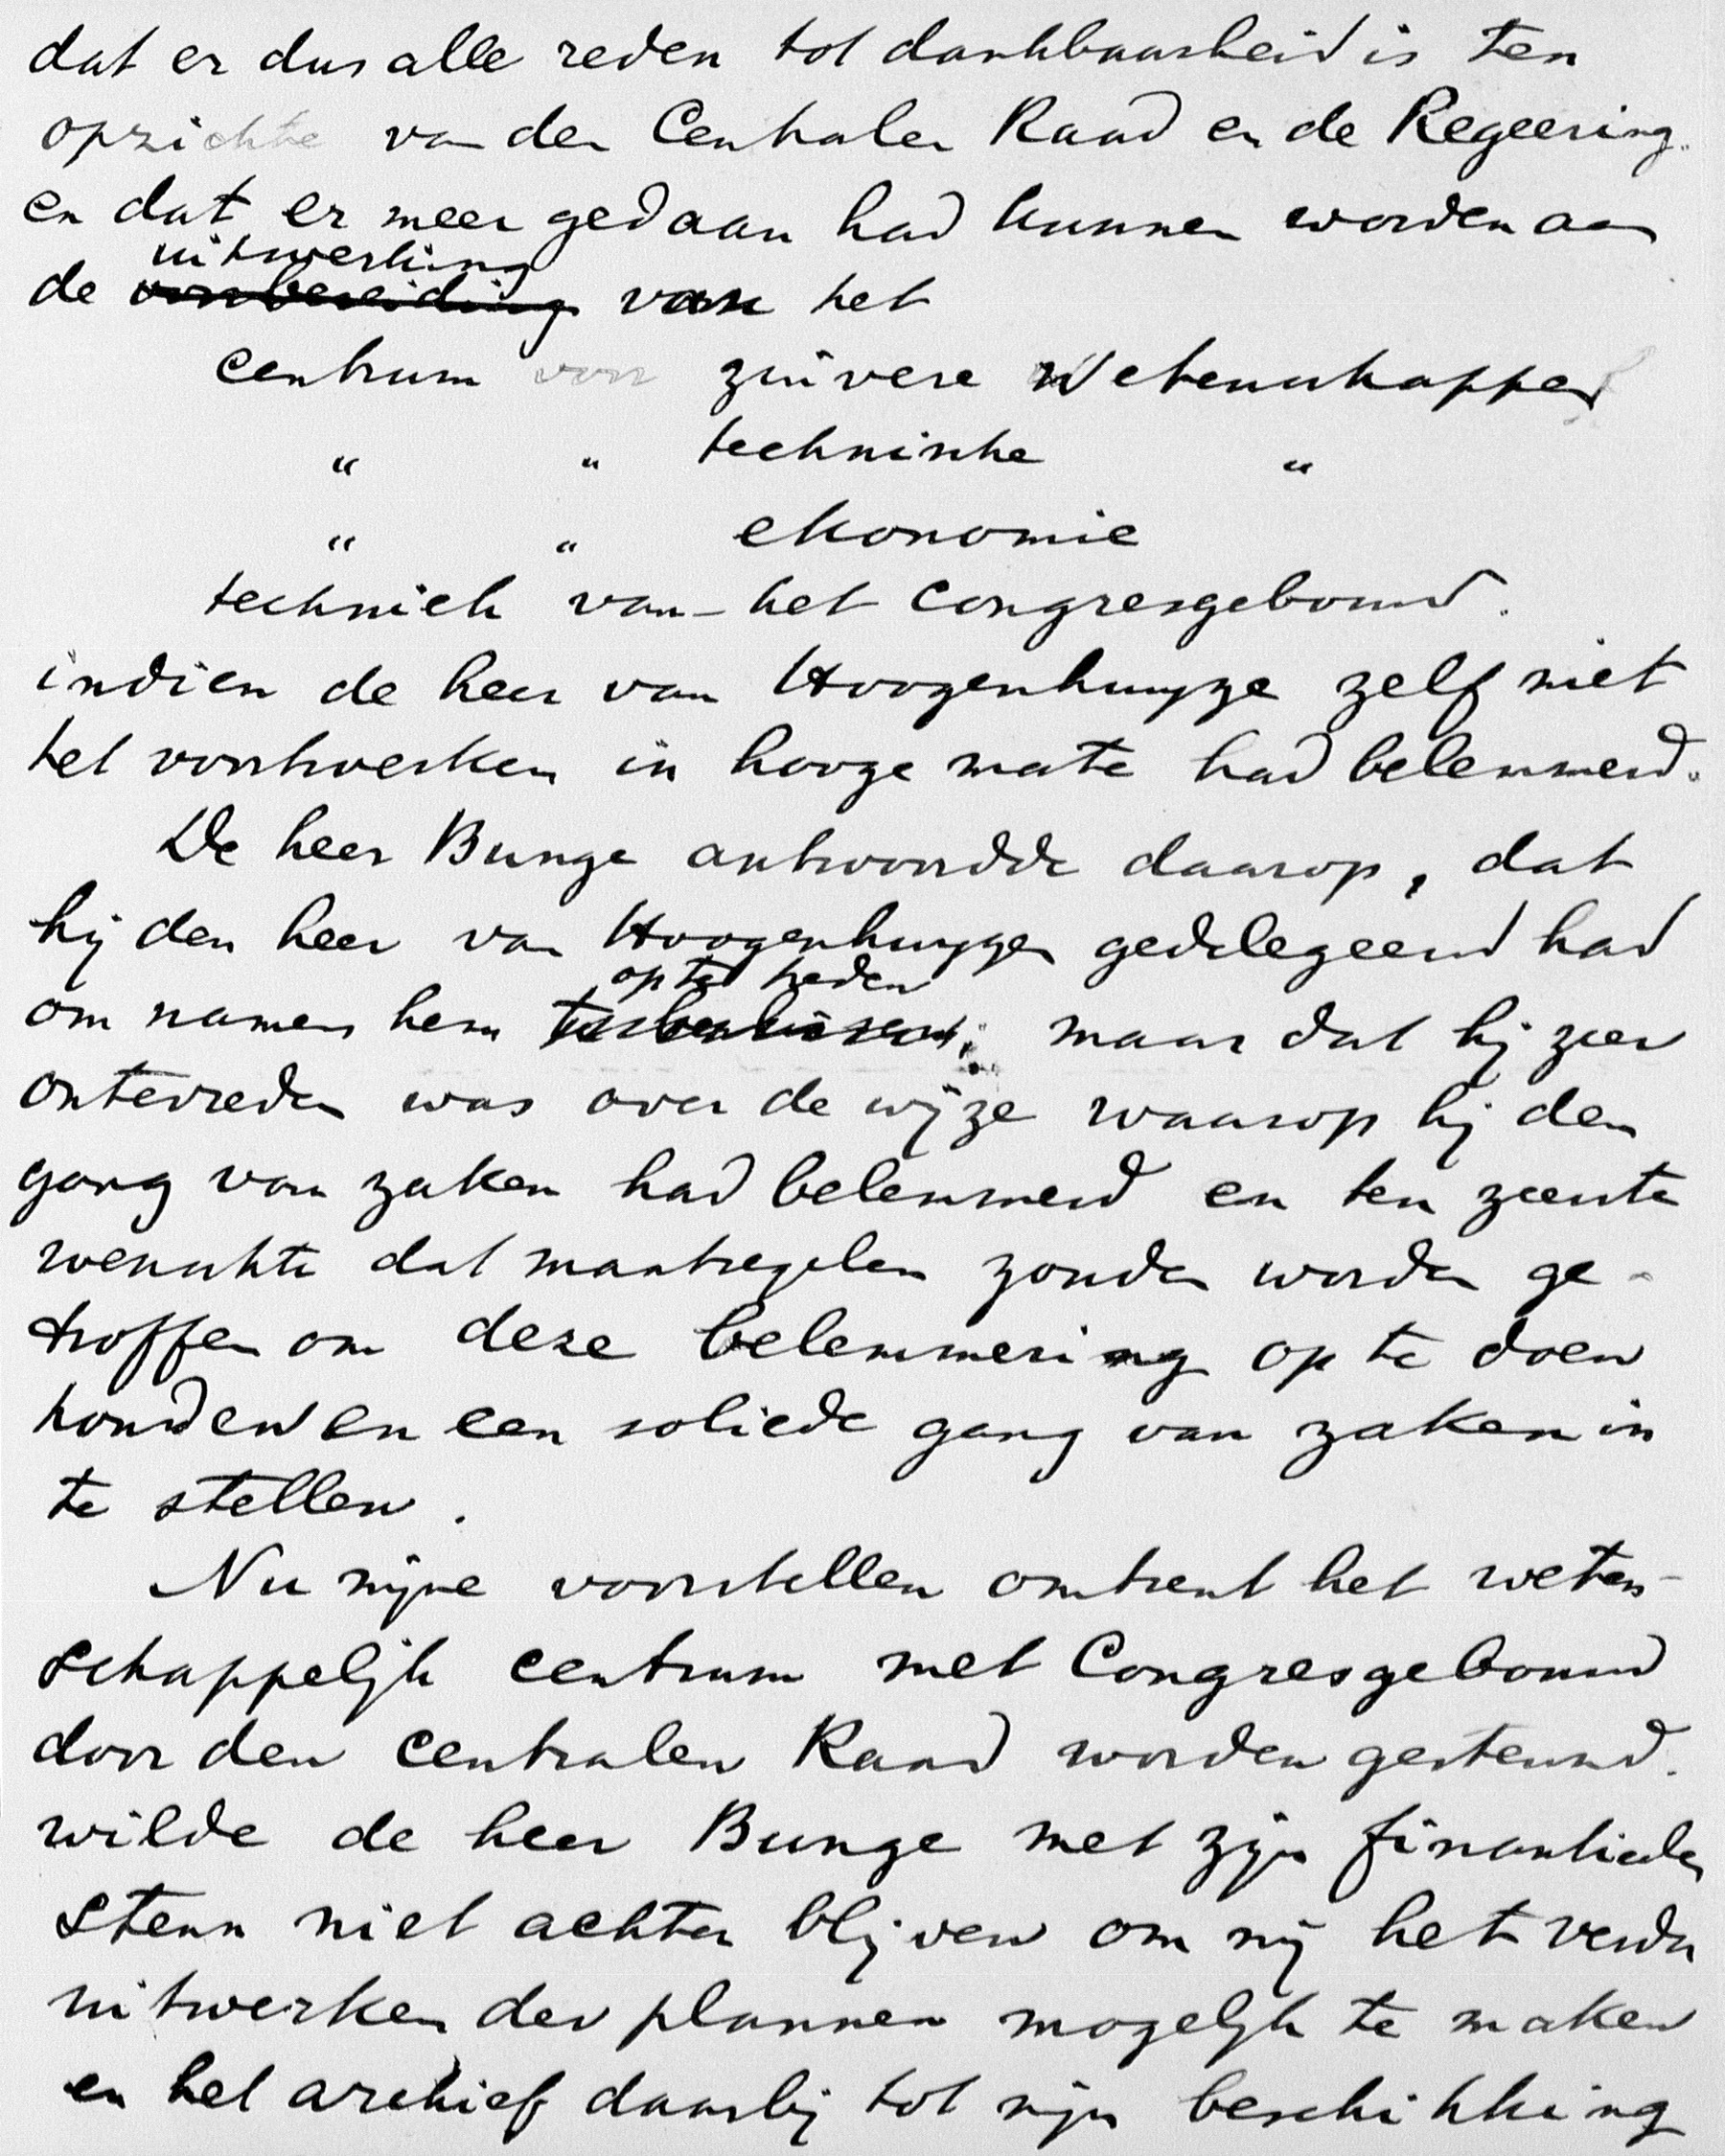 dat er dus alle reden tot dankbaarheid is ten
opzichte van den Centralen Raad en de Regeering.
en dat er meer gedaan had kunnen worden aan
uitwerking
de voorbereiding van het
Centrum voor zuivere Wetenschappen
" " technische "
" " ekonomie
techniek van het Congresgebouw.
indien de heer van Hoogenhuyze zelf niet
het voortwerken in hooge mate had belemmerd.
De heer Bunge antwoordde daarop, dat
hij den heer van Hoogenhuyze gedelegeerd had
op te treden
om namens hem maar dat hij zeer
ontevreden was over de wijze waarop hij den
gang van zaken had belemmerd en ten zeerste
wenschte dat maatregelen zouden worden ge-
troffen om deze belemmering op te doen
houden en een soliede gang van zaken in
te stellen.
Nu mijne voorstellen omtrent het weten-
schappelijk centrum met Congresgebouw
door den Centralen Raad worden gesteund.
wilde de heer Bunge met zijn finantieelen
steun niet achter blijven om mij het verder
uitwerken der plannen mogelijk te maken
en het archief daarbij tot mijn beschikking